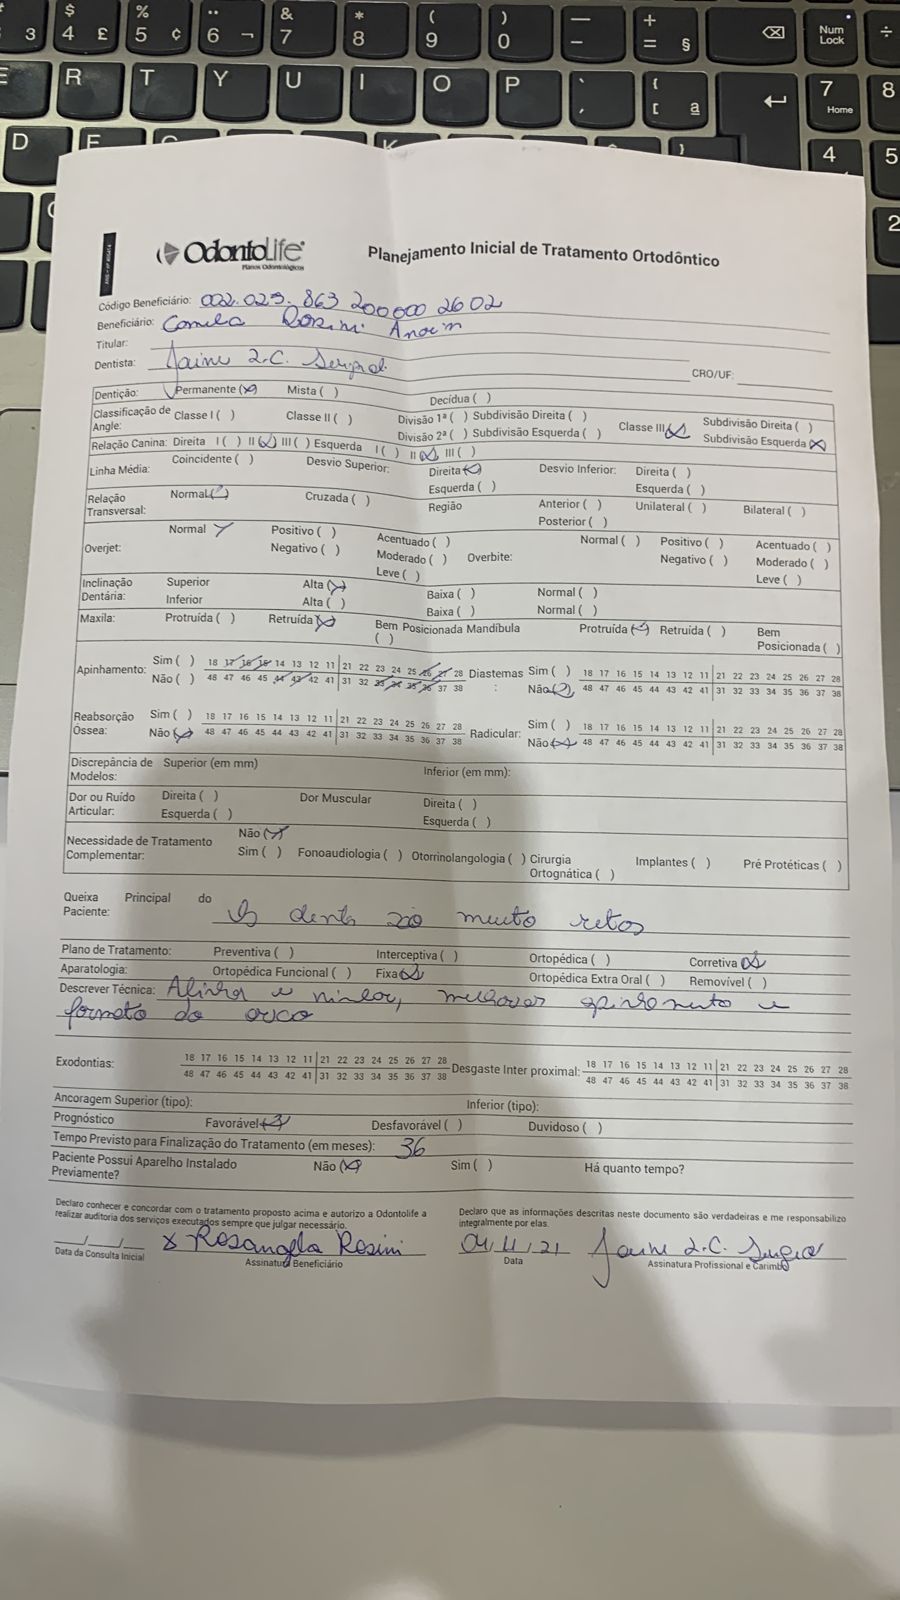 3 $ 4 £ % 5 ¢ ¨ 6 ¬ & 7 * 8 ( 9 ) 0 — - + = § Num Lock ÷
E R T Y U I O P ` ´ { [ ª 7 Home 8
D F K } 4 5
2
OdontoLife
Planos Odontológicos
Planejamento Inicial de Tratamento Ortodôntico
Código Beneficiário: 002.029.863 200000 26 02
Beneficiário: Camila Rosini
Titular:
Dentista: Jaine L.C. CRO/UF:
Dentição: Permanente (x) Mista ( ) Decídua ( )
Classificação de Angle: Classe I ( ) Classe II ( ) Divisão 1ª ( ) Subdivisão Direita ( ) Classe III (x) Subdivisão Direita ( )
Divisão 2ª ( ) Subdivisão Esquerda ( ) Subdivisão Esquerda (x)
Relação Canina: Direita I ( ) II (x) III ( ) Esquerda I ( ) II (x) III ( )
Linha Média: Coincidente ( ) Desvio Superior: Direita (x) Desvio Inferior: Direita ( )
Esquerda ( ) Esquerda ( )
Relação Transversal: Normal (x) Cruzada ( ) Região Anterior ( ) Unilateral ( ) Bilateral ( )
Posterior ( )
Overjet: Normal x Positivo ( ) Acentuado ( ) Overbite: Normal ( ) Positivo ( ) Acentuado ( )
Negativo ( ) Moderado ( ) Negativo ( ) Moderado ( )
Leve ( ) Leve ( )
Inclinação Dentária: Superior Alta (x) Baixa ( ) Normal ( )
Inferior Alta ( ) Baixa ( ) Normal ( )
Maxila: Protruída ( ) Retruída (x) Bem Posicionada ( ) Mandíbula Protruída (x) Retruída ( ) Bem Posicionada ( )
Apinhamento: Sim ( ) 18 17 16 15 14 13 12 11 21 22 23 24 25 26 27 28 Diastemas : Sim ( ) 18 17 16 15 14 13 12 11 21 22 23 24 25 26 27 28
Não ( ) 48 47 46 45 44 43 42 41 31 32 33 34 35 36 37 38 Não (x) 48 47 46 45 44 43 42 41 31 32 33 34 35 36 37 38
Reabsorção Óssea: Sim ( ) 18 17 16 15 14 13 12 11 21 22 23 24 25 26 27 28 Radicular: Sim ( ) 18 17 16 15 14 13 12 11 21 22 23 24 25 26 27 28
Não (x) 48 47 46 45 44 43 42 41 31 32 33 34 35 36 37 38 Não (x) 48 47 46 45 44 43 42 41 31 32 33 34 35 36 37 38
Discrepância de Modelos: Superior (em mm) Inferior (em mm):
Dor ou Ruído Articular: Direita ( ) Dor Muscular Direita ( )
Esquerda ( ) Esquerda ( )
Necessidade de Tratamento Complementar: Não (x)
Sim ( ) Fonoaudiologia ( ) Otorrinolangologia ( ) Cirurgia Ortognática ( ) Implantes ( ) Pré Protéticas ( )
Queixa Principal do Paciente: Os dents são muito retos
Plano de Tratamento: Preventiva ( ) Interceptiva ( ) Ortopédica ( ) Corretiva (x)
Aparatologia: Ortopédica Funcional ( ) Fixa (x) Ortopédica Extra Oral ( ) Removível ( )
Descrever Técnica: Alinhar e nivelar, melhorar apinhamento e
formato do arco
Exodontias: 18 17 16 15 14 13 12 11 21 22 23 24 25 26 27 28 Desgaste Inter proximal: 18 17 16 15 14 13 12 11 21 22 23 24 25 26 27 28
48 47 46 45 44 43 42 41 31 32 33 34 35 36 37 38 48 47 46 45 44 43 42 41 31 32 33 34 35 36 37 38
Ancoragem Superior (tipo): Inferior (tipo):
Prognóstico Favorável (x) Desfavorável ( ) Duvidoso ( )
Tempo Previsto para Finalização do Tratamento (em meses): 36
Paciente Possui Aparelho Instalado Previamente? Não (x) Sim ( ) Há quanto tempo?
Declaro conhecer e concordar com o tratamento proposto acima e autorizo a Odontolife a
realizar auditoria dos serviços executados sempre que julgar necessário.
Declaro que as informações descritas neste documento são verdadeiras e me responsabilizo
integralmente por elas.
__/__/__ x Rosangela Rosini 04,11,21 Jaine L.C.
Data da Consulta Inicial Assinatura Beneficiário Data Assinatura Profissional e Carimbo